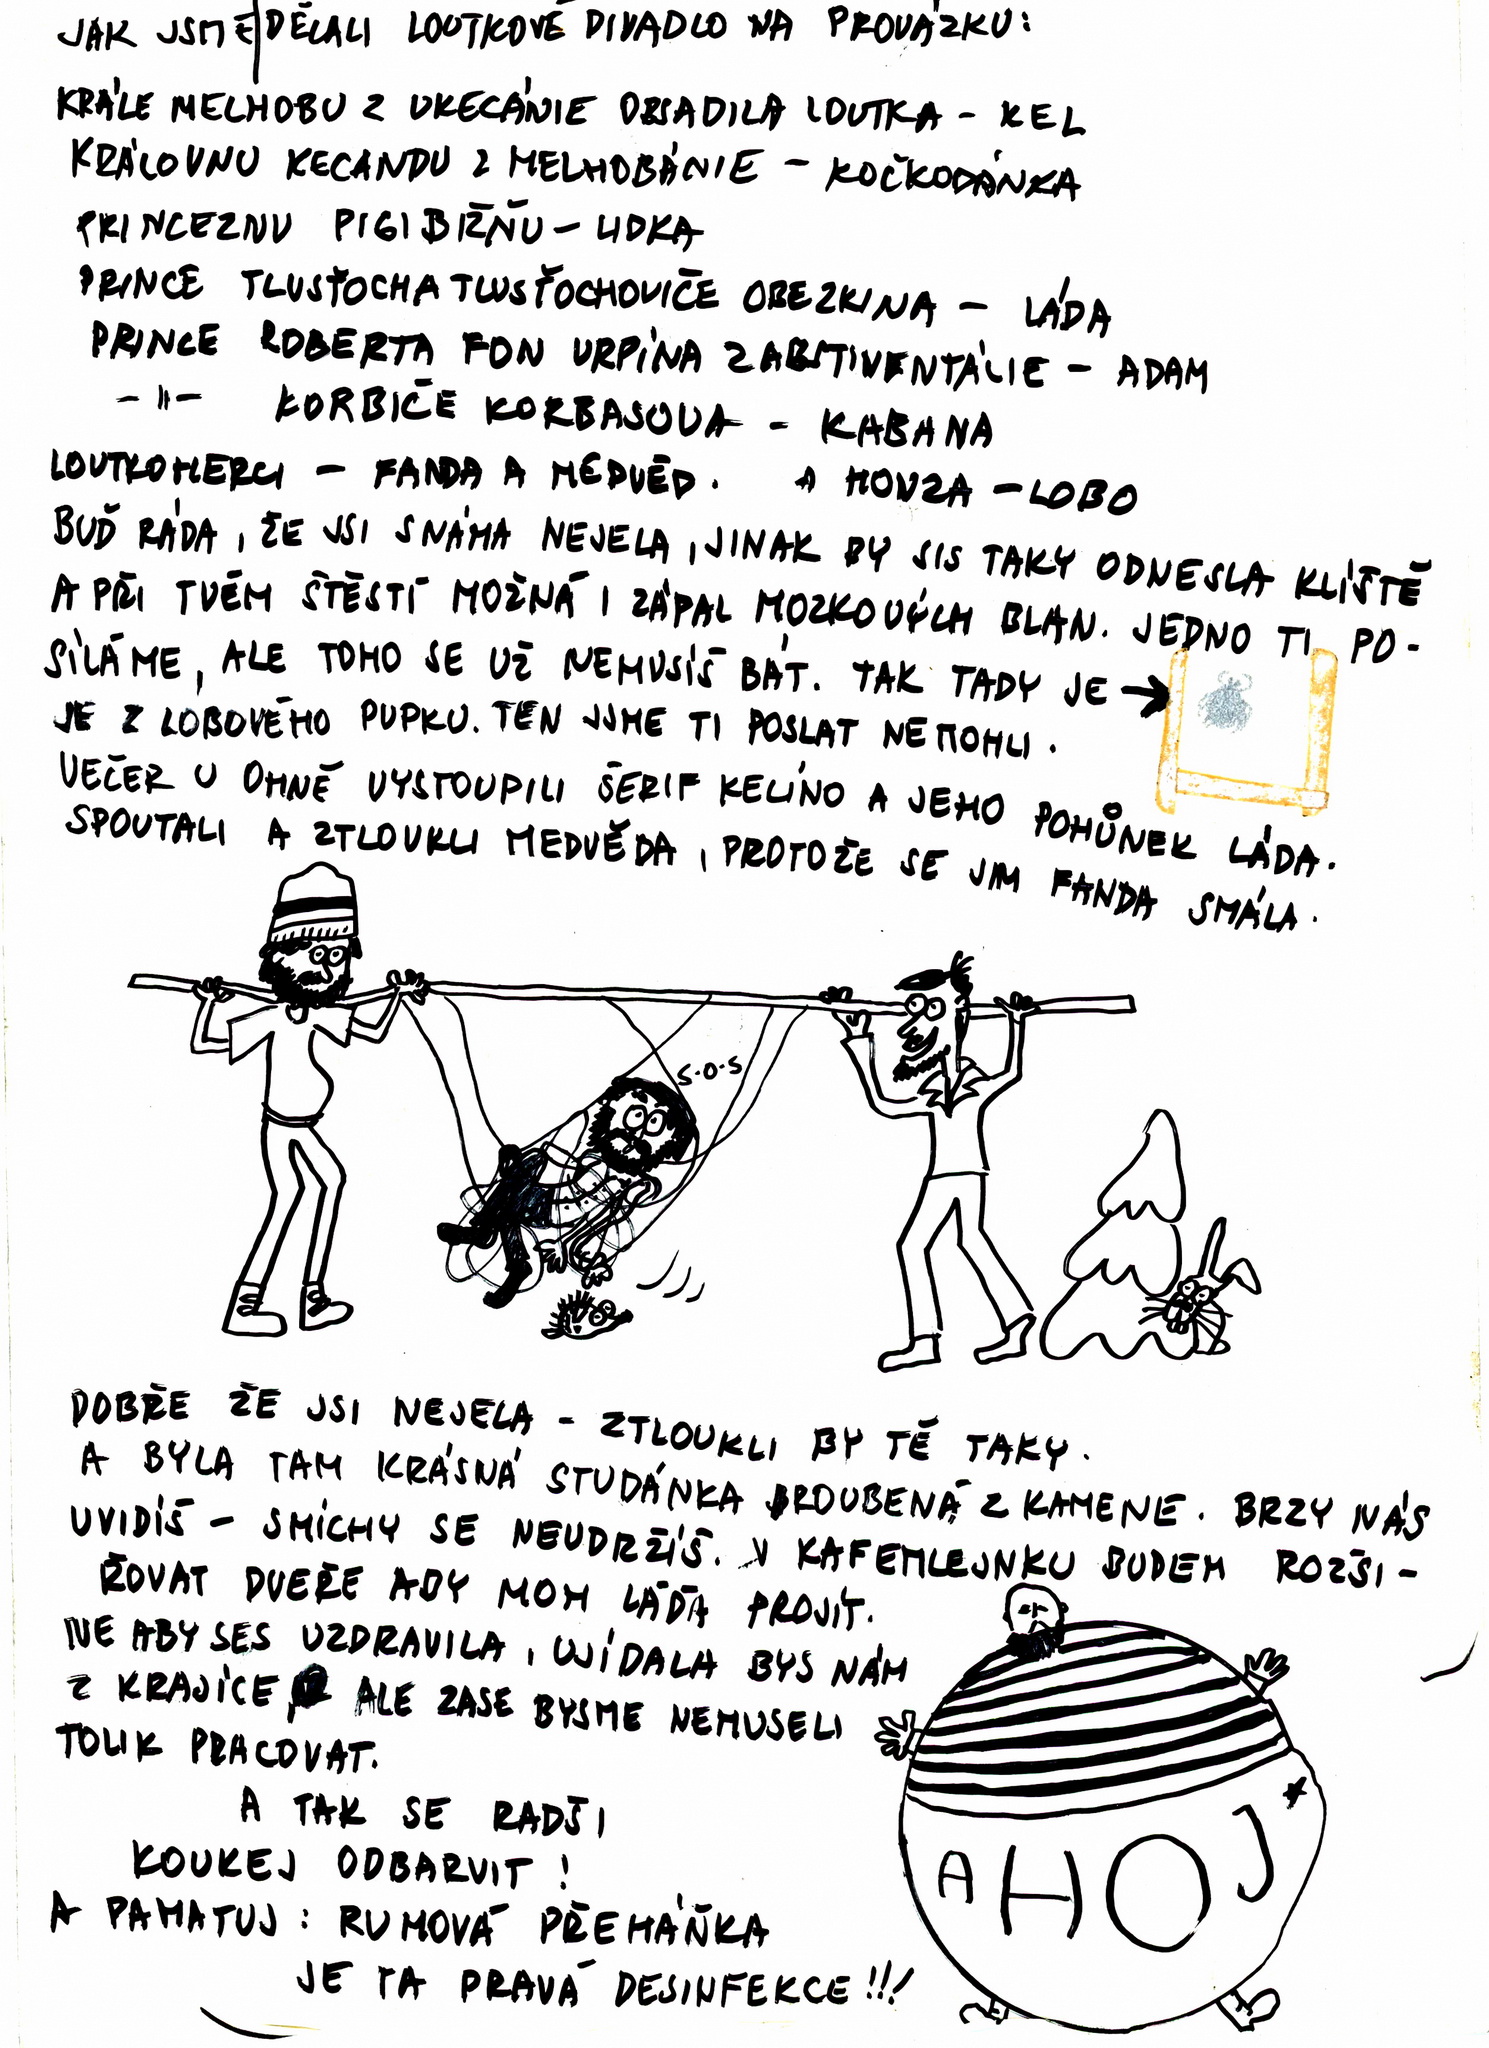 JAK JSME DĚLALI LOUTKOVÉ DIVADLO NA PROVÁZKU:
KRÁLE MELHOBU Z UKECÁNIE OBSADILA LOUTKA - KEL
KRÁLOVNU KECANDU Z MELHOBÁNIE - KOČKODÁNKA
PRINCEZNU PIGI BÍŽŇU - LIDKA
PRINCE TLUSŤOCHA TLUSŤOCHOVIČE OBEZKINA - LÁĎA
PRINCE ROBERTA FON URPÍNA Z ABSTINENTÁLIE - ADAM
-"- KORBIČE KORBASOVA - KABANA
LOUTKOHERCI - FANDA A MEDVĚD. A HONZA - LOBO
BUĎ RÁDA, ŽE JSI S NÁMA NEJELA, JINAK BY SIS TAKY ODNESLA KLÍŠTĚ
A PŘI TVÉM ŠTĚSTÍ MOŽNÁ I ZÁPAL MOZKOVÝCH BLAN. JEDNO TI PO-
SÍLÁME, ALE TOHO SE UŽ NEMUSÍŠ BÁT. TAK TADY JE →
JE Z LOBOVÉHO PUPKU. TEN JSME TI POSLAT NEMOHLI.
VEČER U OHNĚ VYSTOUPILI ŠERIF KELÍNO A JEHO POHŮNEK LÁĎA.
SPOUTALI A ZTLOUKLI MEDVĚDA, PROTOŽE SE JIM FANDA SMÁLA.
S.O.S
DOBŘE ŽE JSI NEJELA - ZTLOUKLI BY TĚ TAKY.
A BYLA TAM KRÁSNÁ STUDÁNKA ROUBENÁ Z KAMENE. BRZY NÁS
UVIDÍŠ - SMÍCHY SE NEUDRŽÍŠ. V KAFEMLEJNKU BUDEM ROZŠI-
ŘOVAT DVEŘE ABY MOH LÁĎA PROJÍT.
NE ABY SES UZDRAVILA, UJÍDALA BYS NÁM
Z KRAJÍCE, ALE ZASE BYSME NEMUSELI
TOLIK PRACOVAT.
A TAK SE RADŠI
KOUKEJ ODBARVIT!
A PAMATUJ: RUMOVÁ PŘEHÁŇKA
JE TA PRAVÁ DESINFEKCE!!!
AHOJ